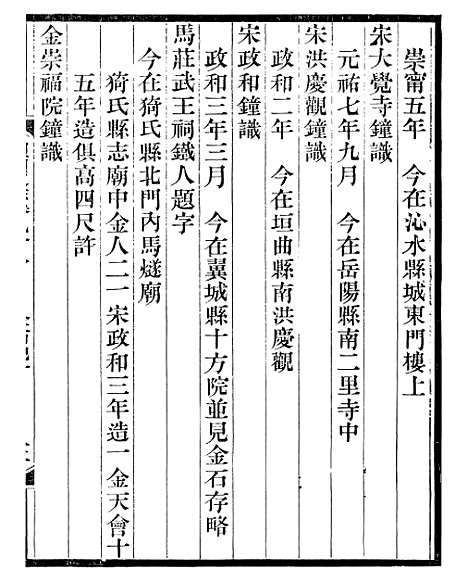 崇甯五年　今在沁水縣城東門樓上
宋大覺寺鐘識
元祐七年九月　今在岳陽縣南二里寺中
宋洪慶觀鐘識
政和二年　今在垣曲縣南洪慶觀
宋政和鐘識
政和三年三月　今在翼城縣十方院並見金石存略
馬莊武王祠鐵人題字
今在猗氏縣北門內馬燧廟
猗氏縣志廟中金人二一宋政和三年造一金天會十
五年造俱高四尺許
金崇福院鐘識